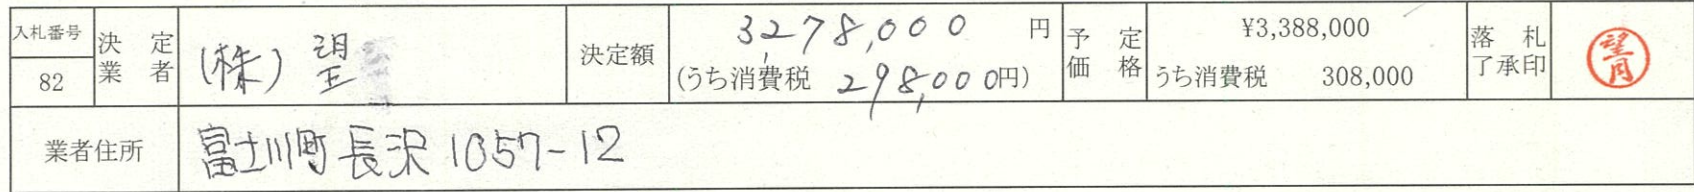 入札番号
82
決定
業者
(株) 望
決定額
3,278,000 円
(うち消費税 298,000円)
予定
価格
¥3,388,000
うち消費税 308,000
落札
了承印
望月
業者住所
富士川町長沢1057-12